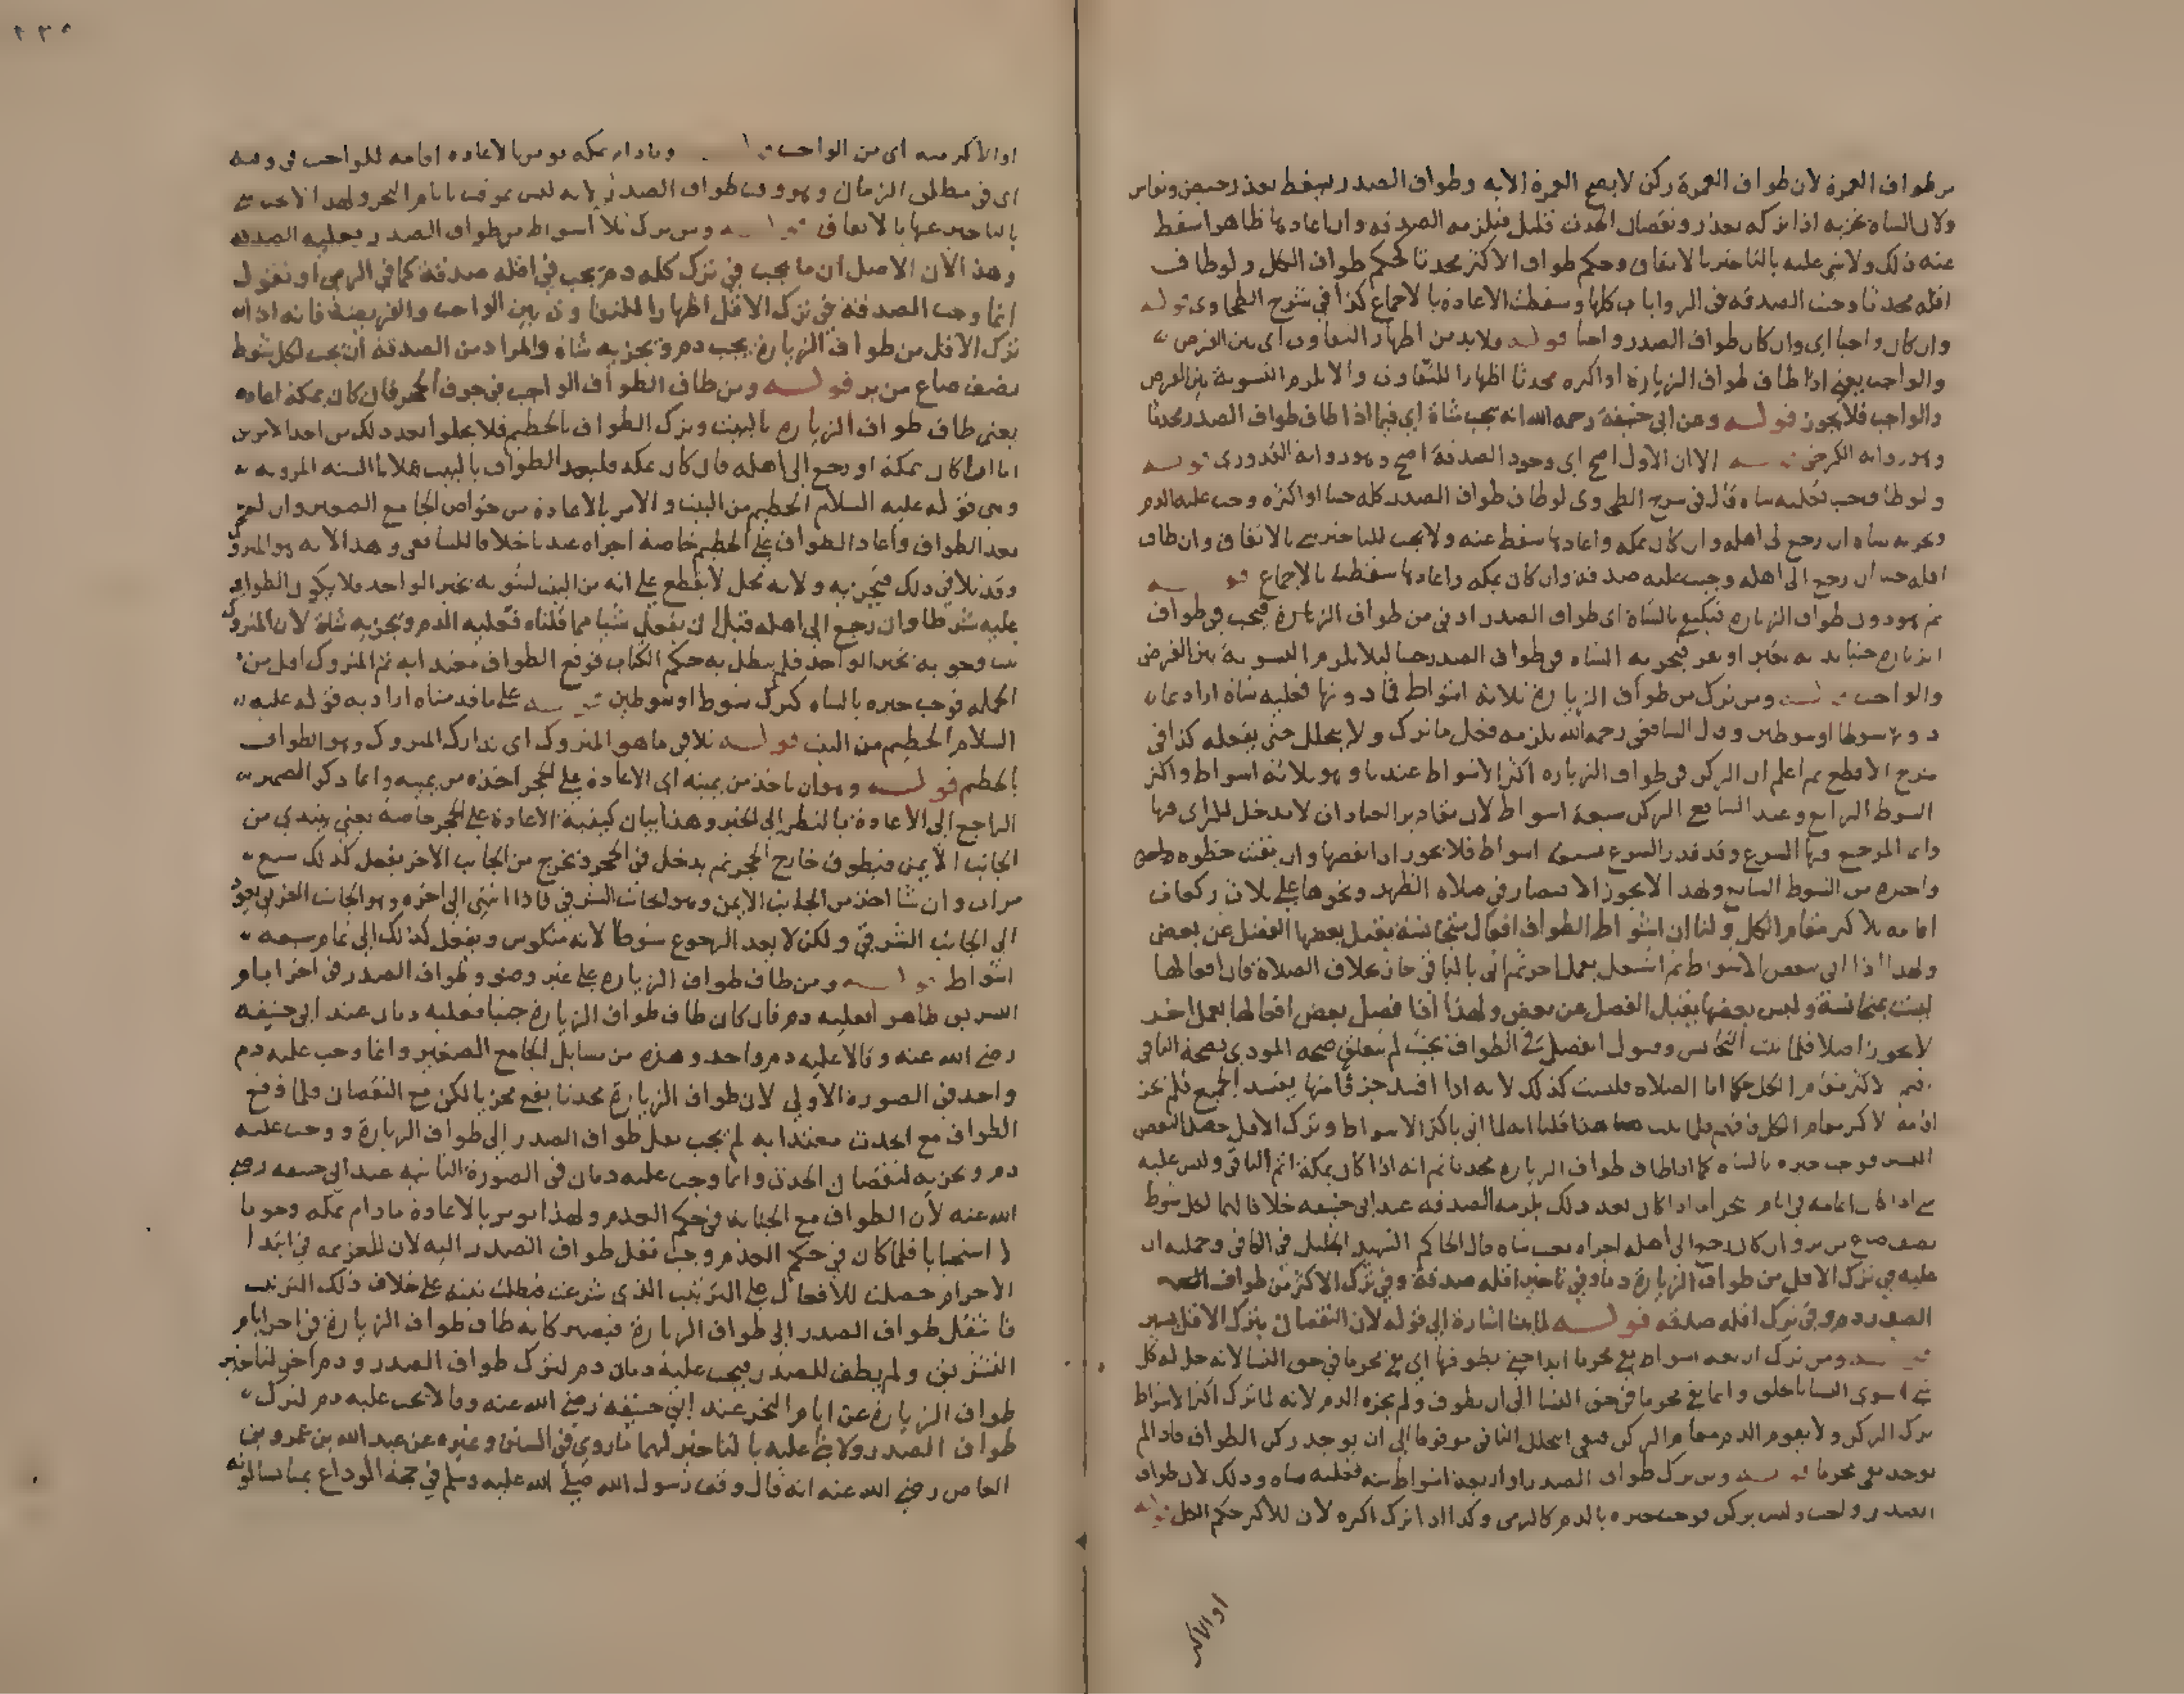 من طواف العمرة لان طواف العمرة ركن لا يصح العمرة الا به وطواف الصدر يسقط بعذر حيض ونفاس
ولان الشاة تجزيه اذا تركه بعذر ونقصان الحدث قليل فيلزمه الصدقة وان اعادها ظاهرا سقط
عنه ذلك ولا شي عليه بالتاخير بالاتفاق وحكم طواف الاكثر محدثا كحكم طواف الكل ولو طاف
اقله محدثا وجبت الصدقة في الروايات كلها وسقطت الاعادة بالاجماع كذا في شرح الطحاوي قوله
وان كان واجبا اي وان كان طواف الصدر واجبا قوله فلا بد من اظهار التفاوت اي بين الفرض
والواجب يعني اذا طاف طواف الزيارة او اكثره محدثا اظهارا للتفاوت والا يلزم التسوية بين الفرض
والواجب فلا يجوز قوله وعن ابي حنيفة رحمه الله انه يجب شاة اي فيما اذا طاف طواف الصدر محدثا
وهو رواية الكرخي قوله الا ان الاول اصح اي وجوب الصدقة اصح وهو رواية القدوري قوله
ولو طاف جنبا فعليه شاة قال في شرح الطحاوي لو طاف طواف الصدر كله جنبا او اكثره وجب عليه الدم
وتجزيه شاة ان رجع الى اهله وان كان بمكة واعادها سقط عنه ولا يجب للتاخير شي بالاتفاق وان طاف
اقله جنبا ان رجع الى اهله وجب عليه صدقة وان كان بمكة واعادها سقطت بالاجماع قوله
ثم هو دون طواف الزيارة فيكتفي بالشاة اي طواف الصدر ادنى من طواف الزيارة فيجب في طواف
الزيارة جنبا بدنة بعير او بقر فيجزيه الشاة في طواف الصدر جنبا ليلا يلزم التسوية بين الفرض
والواجب قوله ومن ترك من طواف الزيارة ثلاثة اشواط فما دونها فعليه شاة اراد بما
دونها شوطا او شوطين وقال الشافعي رحمه الله يلزمه فعل ما ترك ولا يحلل حتى يفعله كذا في
شرح الاقطع ثم اعلم ان الركن في طواف الزيارة اكثر الاشواط عندنا وهو ثلاثة اشواط واكثر
الشوط الرابع وعند الشافعي الركن سبعة اشواط لان مقادير العبادات لا يدخل للراي فيها
وانما المرجع فيها الشرع وقد قدر الشرع بسبعة اشواط فلا يجوز اذا نقصها وان بقيت خطوة
واحدة من الشوط السابع ولهذا لا يجوز الاقتصار في صلاة الظهر ونحوها على ثلاث ركعات
اقامة للاكثر مقام الكل ولنا ان اشواط الطواف افعال متجانسة يقبل بعضها الفصل عن بعض
ولهذا اذا اتى ببعض الاشواط ثم اشتغل بعمل اخر ثم اتى بالباقي جاز بخلاف الصلاة فان افعالها
ليست بمتجانسة وليس بعضها يقبل الفصل عن بعض ولهذا اذا فصل بعض افعالها بعمل اخر
لا يجوز اصلا فلما ثبت التجانس وقبول الفصل في الطواف بحيث لم يتعلق صحة المودى بصحة الباقي
اقيم الاكثر مقام الكل حكما اما الصلاة فليست كذلك لانه اذا افسد جزء منها يفسد الجميع فلم يجز
اقامة الاكثر مقام الكل فافهم فلما ثبت هذا قلنا انه لما اتى باكثر الاشواط وترك الاقل حصل النقص
اليسير فوجب جبره بالشاة كما اذا طاف طواف الزيارة محدثا ثم انه اذا كان بمكة اتم الباقي وليس عليه
شي اذا كان اتمامه في ايام النحر اما اذا كان بعد ذلك يلزمه الصدقة عند ابي حنيفة خلافا لهما لكل شوط
نصف صاع من بر وان كان رجع الى اهله اجزاه بعث شاة قال الحاكم الشهيد الجليل في الكافي وجملته ان
عليه في ترك الاقل من طواف الزيارة دما وفي تاخير اقله صدقة وفي ترك الاكثر من طواف
الصدر دم وفي ترك اقله صدقة قوله لما بينا اشارة الى قوله لان النقصان بترك الاقل يسير
قوله ومن ترك اربعة اشواط بقي محرما ابدا حتى يطوفها اي بقي محرما في حق النسا لانه حل له كل
شي سوى النسا بالحلق وانما بقي محرما في حق النسا الى ان يطوف ولم يجزه الدم لانه لما ترك اكثر الاشواط
ترك الركن ولا يقوم الدم مقام الركن فبقي التحلل الثاني موقوفا الى ان يوجد ركن الطواف فما دام لم
يوجد بقي محرما قوله ومن ترك طواف الصدر او اربعة اشواط منه فعليه شاة وذلك لان طواف
الصدر واجب وليس بركن فوجب جبره بالدم كالرمي وكذا اذا ترك اكثره لان للاكثر حكم الكل قوله
او الاكثر
او الاكثر منه اي من الواجب قوله وما دام بمكة يومر بالاعادة اقامة للواجب في وقته
اي في مطلق الزمان وهو وقت طواف الصدر لانه ليس بموقت بايام النحر ولهذا لا يجب شي
بالتاخير عنها بالاتفاق قوله ومن ترك ثلاثة اشواط من طواف الصدر فعليه الصدقة
وهذا لان الاصل ان ما يجب في ترك كله دم يجب في اقله صدقة كما في الرمي او نقول
انما وجب الصدقة في ترك الاقل اظهارا للتفاوت بين الواجب والفريضة فانه اذا
ترك الاقل من طواف الزيارة يجب دم وتجزيه شاة والمراد من الصدقة ان يجب لكل شوط
نصف صاع من بر قوله ومن طاف الطواف الواجب في جوف الحجر فان كان بمكة اعاده
يعني طاف طواف الزيارة بالبيت وترك الطواف بالحطيم فلا يخلو بعد ذلك من احد الامرين
اما ان كان بمكة او رجع الى اهله فان كان بمكة فليعد الطواف بالبيت عملا بالسنة المروية
وهي قوله عليه السلام الحطيم من البيت والامر بالاعادة من خواص الجامع الصغير وان لم
يعد الطواف واعاد الطواف على الحطيم خاصة اجزاه عندنا خلافا للشافعي وهذا لانه هو المتروك
وقد تلافى ذلك فيجزيه ولانه محل لا يقطع على انه من البيت لثبوته بخبر الواحد فلا يكون الطواف
عليه شرطا وان رجع الى اهله قبل ان يفعل شيا مما قلناه فعليه الدم وتجزيه شاة لان المتروك
ثبت وجوبه بخبر الواحد فلم يبطل به حكم الكتاب فوقع الطواف معتدا به ثم المتروك اقل من
الجملة فوجب جبره بالشاة كترك شوط او شوطين قوله على ما قدمناه اراد به قوله عليه
السلام الحطيم من البيت قوله تلافى ما هو المتروك اي تدارك المتروك وهو الطواف
بالحطيم قوله وهو ان ياخذ من يمينه اي الاعادة على الحجر اخذه من يمينه وانما ذكر الضمير
الراجع الى الاعادة بالنظر الى الخبر وهذا بيان كيفية الاعادة على الحجر خاصة يعني يبتدي من
الجانب الايمن فيطوف خارج الحجر ثم يدخل في الحجر ويخرج من الجانب الاخر يفعل كذلك سبع
مرات وان شا اخذ من الجانب الايمن وهو الجانب الشرقي فاذا انتهى الى اخره وهو الجانب الغربي يعود
الى الجانب الشرقي ولكن لا يعد الرجوع شوطا لانه منكوس ويفعل كذلك الى تمام سبعة
اشواط قوله ومن طاف طواف الزيارة على غير وضو وطواف الصدر في اخر ايام
التشريق طاهرا فعليه دم فان كان طاف طواف الزيارة جنبا فعليه دمان عند ابي حنيفة
رضي الله عنه وقالا عليه دم واحد وهذه من مسايل الجامع الصغير وانما وجب عليه دم
واحد في الصورة الاولى لان طواف الزيارة محدثا يقع مجزيا لكن مع النقصان فلما وقع
الطواف مع الحدث معتدا به لم يجب نقل طواف الصدر الى طواف الزيارة ووجب عليه
دم وتجزيه لنقصان الحدث وانما وجب عليه دمان في الصورة الثانية عند ابي حنيفة رضي
الله عنه لان الطواف مع الجنابة في حكم العدم ولهذا يومر بالاعادة ما دام بمكة وجوبا
لا استحبابا فلما كان في حكم العدم وجب نقل طواف الصدر اليه لان العزيمة في ابتدا
الاحرام حصلت للافعال على الترتيب الذي شرعت فبطلت نيته على خلاف ذلك الترتيب
فانتقل طواف الصدر الى طواف الزيارة فيصير كانه طاف طواف الزيارة في اخر ايام
التشريق ولم يطف للصدر فيجب عليه دمان دم لترك طواف الصدر ودم اخر لتاخير
طواف الزيارة عن ايام النحر عند ابي حنيفة رضي الله عنه وقالا يجب عليه دم لترك
طواف الصدر ولا شي عليه بالتاخير لهما ما روي في السنن وغيره عن عبد الله بن عمرو بن
العاص رضي الله عنه انه قال وقف رسول الله صلى الله عليه وسلم في حجة الوداع بمنا يسالونه